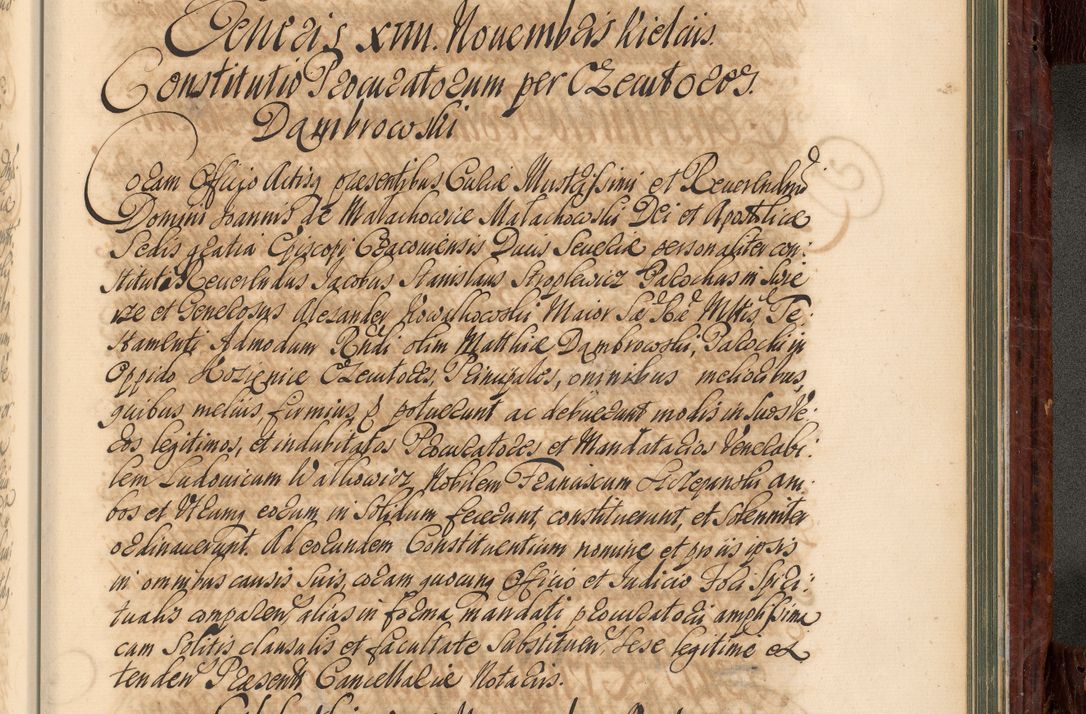 Veneris XIIII. Novembris Kielciis.
Constitutio Procuratorum per Executores
Dambrowski
Coram Officio Actisq præsentibus Curiæ Illustrissimi et Reverendissimi
Domini Joannis de Małachowice Małachowski Dei et Apostolicæ
Sedis gratia Episcopi Cracoviensis Ducis Severiæ personaliter con:
stituti Reverendus Jacobus Stanislaus Stroplewicz Parochus in
et Generosus Alexander Kowalkowski Maior Sæ Ræ Mttis Te:
stamenti Admodum Rndi olim Matthiæ Dambrowski, Parochi in
Oppido Kozienice Executores, Principales, omnibus melioribus,
quibus melius firmius q potuerunt ac debuerunt modis in suos ve:
ros legitimos, et indubitatos Procuratores et Mandatarios Venerabi:
lem Ludovicum Walkowicz Nobilem Franciscum Szczepanski am:
bos et Utrumq eorum in Solidum fecerunt, constituerunt, et solenniter
ordinaverunt. Ad eorundem Constituentium nomine et pro iis ipsis
in omnibus causis suis, coram quocunq Officio et Judicio Fori Spiri:
tualis comparen, alias in forma mandati procuratorii amplissima
cum Solitis clausulis et facultate substituen, sese legitime ex
tenden Præsent Cancellariæ Notariis.